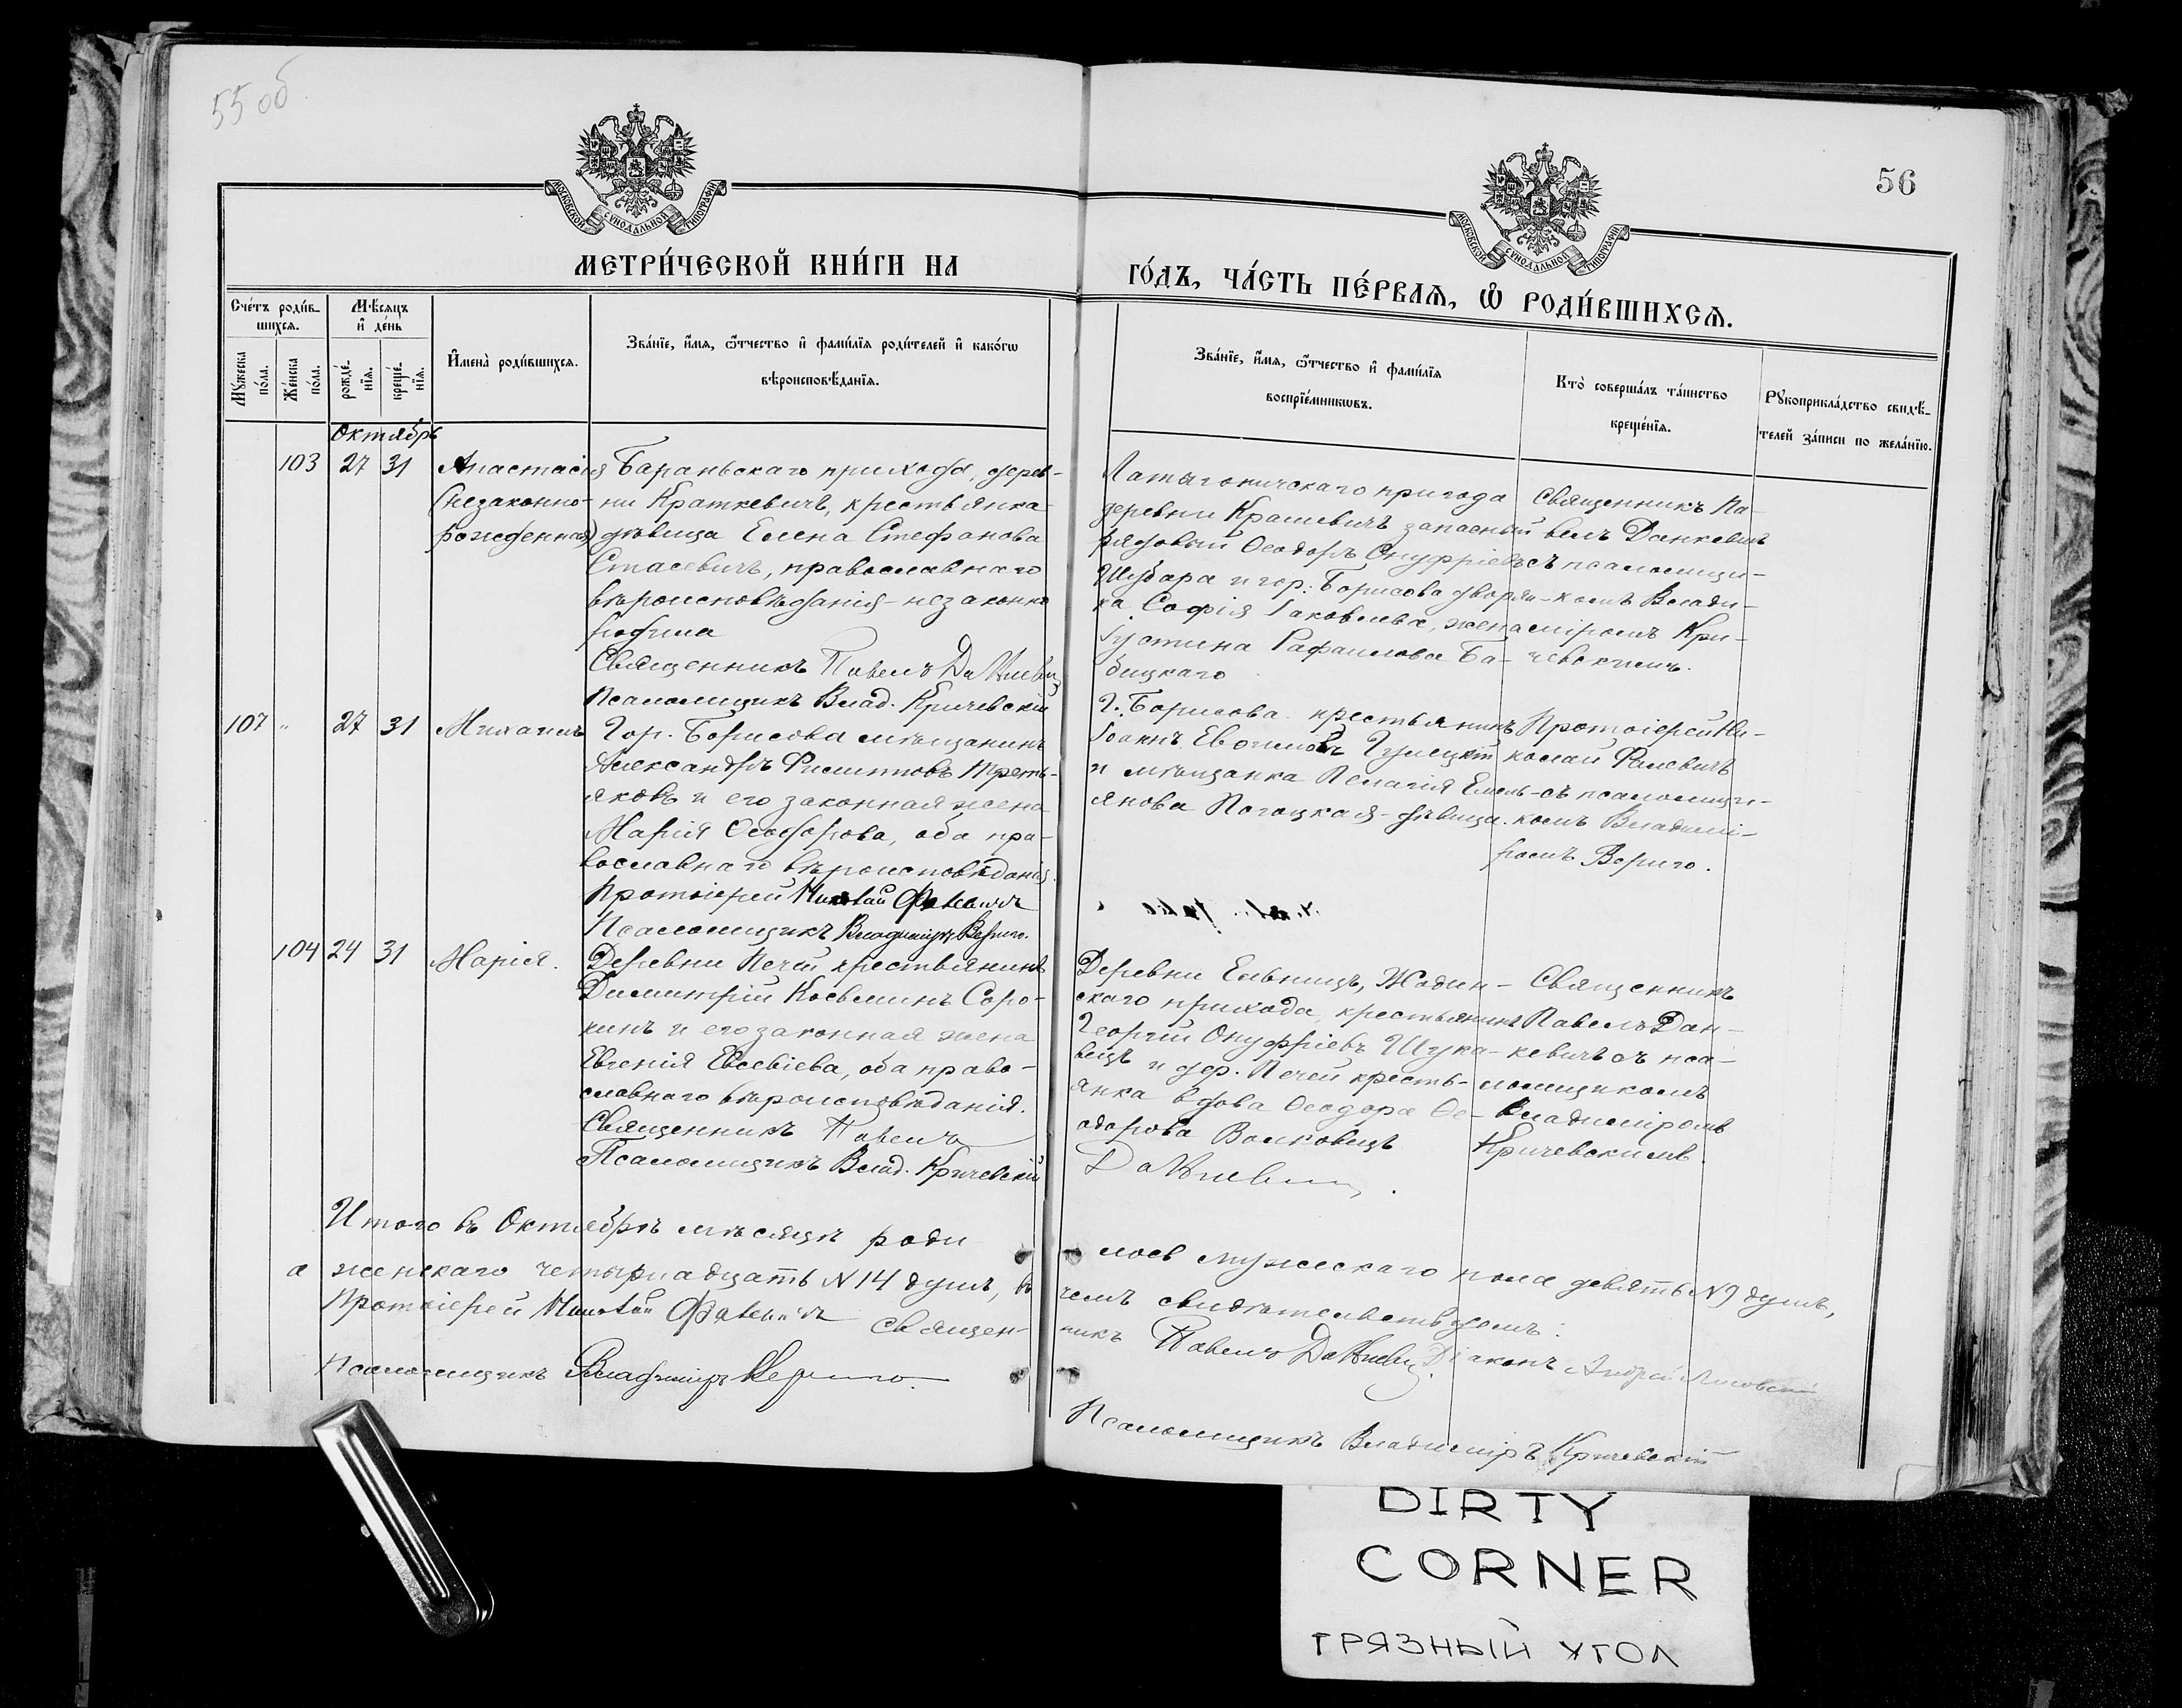 55 об
56
МОСКОВСКОЙ СѴНОДАЛЬНОЙ ТИПОГРАФІИ
МОСКОВСКОЙ СѴНОДАЛЬНОЙ ТИПОГРАФІИ
МЕТРИ́ЧЕСКОЙ КНИ́ГИ НА
ГО́ДЪ, ЧА́СТЬ ПЕ́РВАѦ, Ѡ РОДИ́ВШИХСѦ.
Сче́тъ роди́в-
шихся.
Мѣ́сяцъ
и де́нь
Мꙋ́жеска
по́ла.
Же́нска
по́ла.
рожде́-
нїѧ.
креще́-
нїѧ.
И҆мена̀ роди́вшихся.
Зва́нїе, и҆́мѧ, ѻ҆́тчество и҆ фами́лїѧ роди́телей и҆ како́гѡ
вѣроисповѣ́данїѧ.
Зва́нїе, и҆́мѧ, ѻ҆́тчество и҆ фами́лїѧ
воспрїе́мникѡвъ.
Кто̀ соверша́лъ та́инство
креще́нїѧ.
Рꙋкоприкла́дство свидѣ́-
телей за́писи по жела́нїю.
Октябрь
103 27 31 Анастасія
(незаконно-
рожденная)
Бараньскаго прихода, дерев-
ни Краткевичъ, крестьянка
дѣвица Елена Стефанова
Стасевичъ, православнаго
вѣроисповѣданія - незаконно
родила
Священникъ Павелъ Данкевичъ
Псаломщикъ Влад. Кричевскій
Латыгоничскаго прихода
деревни Крашевичъ запасный
рядовый Ѳеодоръ Онуфріевъ
Шубара и гор. Борисова дворян-
ка Софія Іаковлева, жена
Іустина Рафаилова Ба-
бицкаго
Священникъ Па-
велъ Данкевичъ
съ псаломщи-
комъ Влади-
міромъ Кри-
чевскимъ.
107 " 27 31 Михаилъ
Гор. Борисова мѣщанинъ
Александръ Филипповъ Треть-
яковъ и его законная жена
Марія Ѳеодорова, оба пра-
вославнаго вѣроисповѣданія.
Протоіерей Николай Фалевичъ
Псаломщикъ Владиміръ Вериго.
Г. Борисова крестьянинъ
Іоаннъ
и мѣщанка Пелагія Емель-
янова Погоцкая - дѣвица.
Протоіерей Ни-
колай Фалевичъ
съ псаломщи-
комъ Владимі-
ромъ Вериго.
104 24 31 Марія.
Деревни Печей крестьянинъ
Димитрій Косьминъ Соро-
кинъ и его законная жена
Евгенія Евсевіева, оба право-
славнаго вѣроисповѣданія.
Священникъ Павелъ
Псаломщикъ Влад. Кричевскій
Деревни Ельницъ, Жодин-
скаго прихода, крестьянинъ
Георгій Онуфріевъ Шука-
вецъ и дер. Печей кресть-
янка вдова Ѳеодора Ѳе-
одорова Волковецъ
Данкевичъ.
Священникъ
Павелъ Дан-
кевичъ съ пса-
ломщикомъ
Владиміромъ
Кричевскимъ.
Итого въ Октябрѣ мѣсяцѣ роди-
лось мужескаго пола девять № 9 душъ,
а женскаго четырнадцать № 14 душъ, въ
чемъ свидѣтельствуемъ:
Протоіерей Николай Фалевичъ Священ-
никъ Павелъ Данкевичъ. Діаконъ Андрей Лисовскій
Псаломщикъ Владиміръ Вериго.
Псаломщикъ Владиміръ Кричевскій
DIRTY
CORNER
ГРЯЗНЫЙ УГОЛ